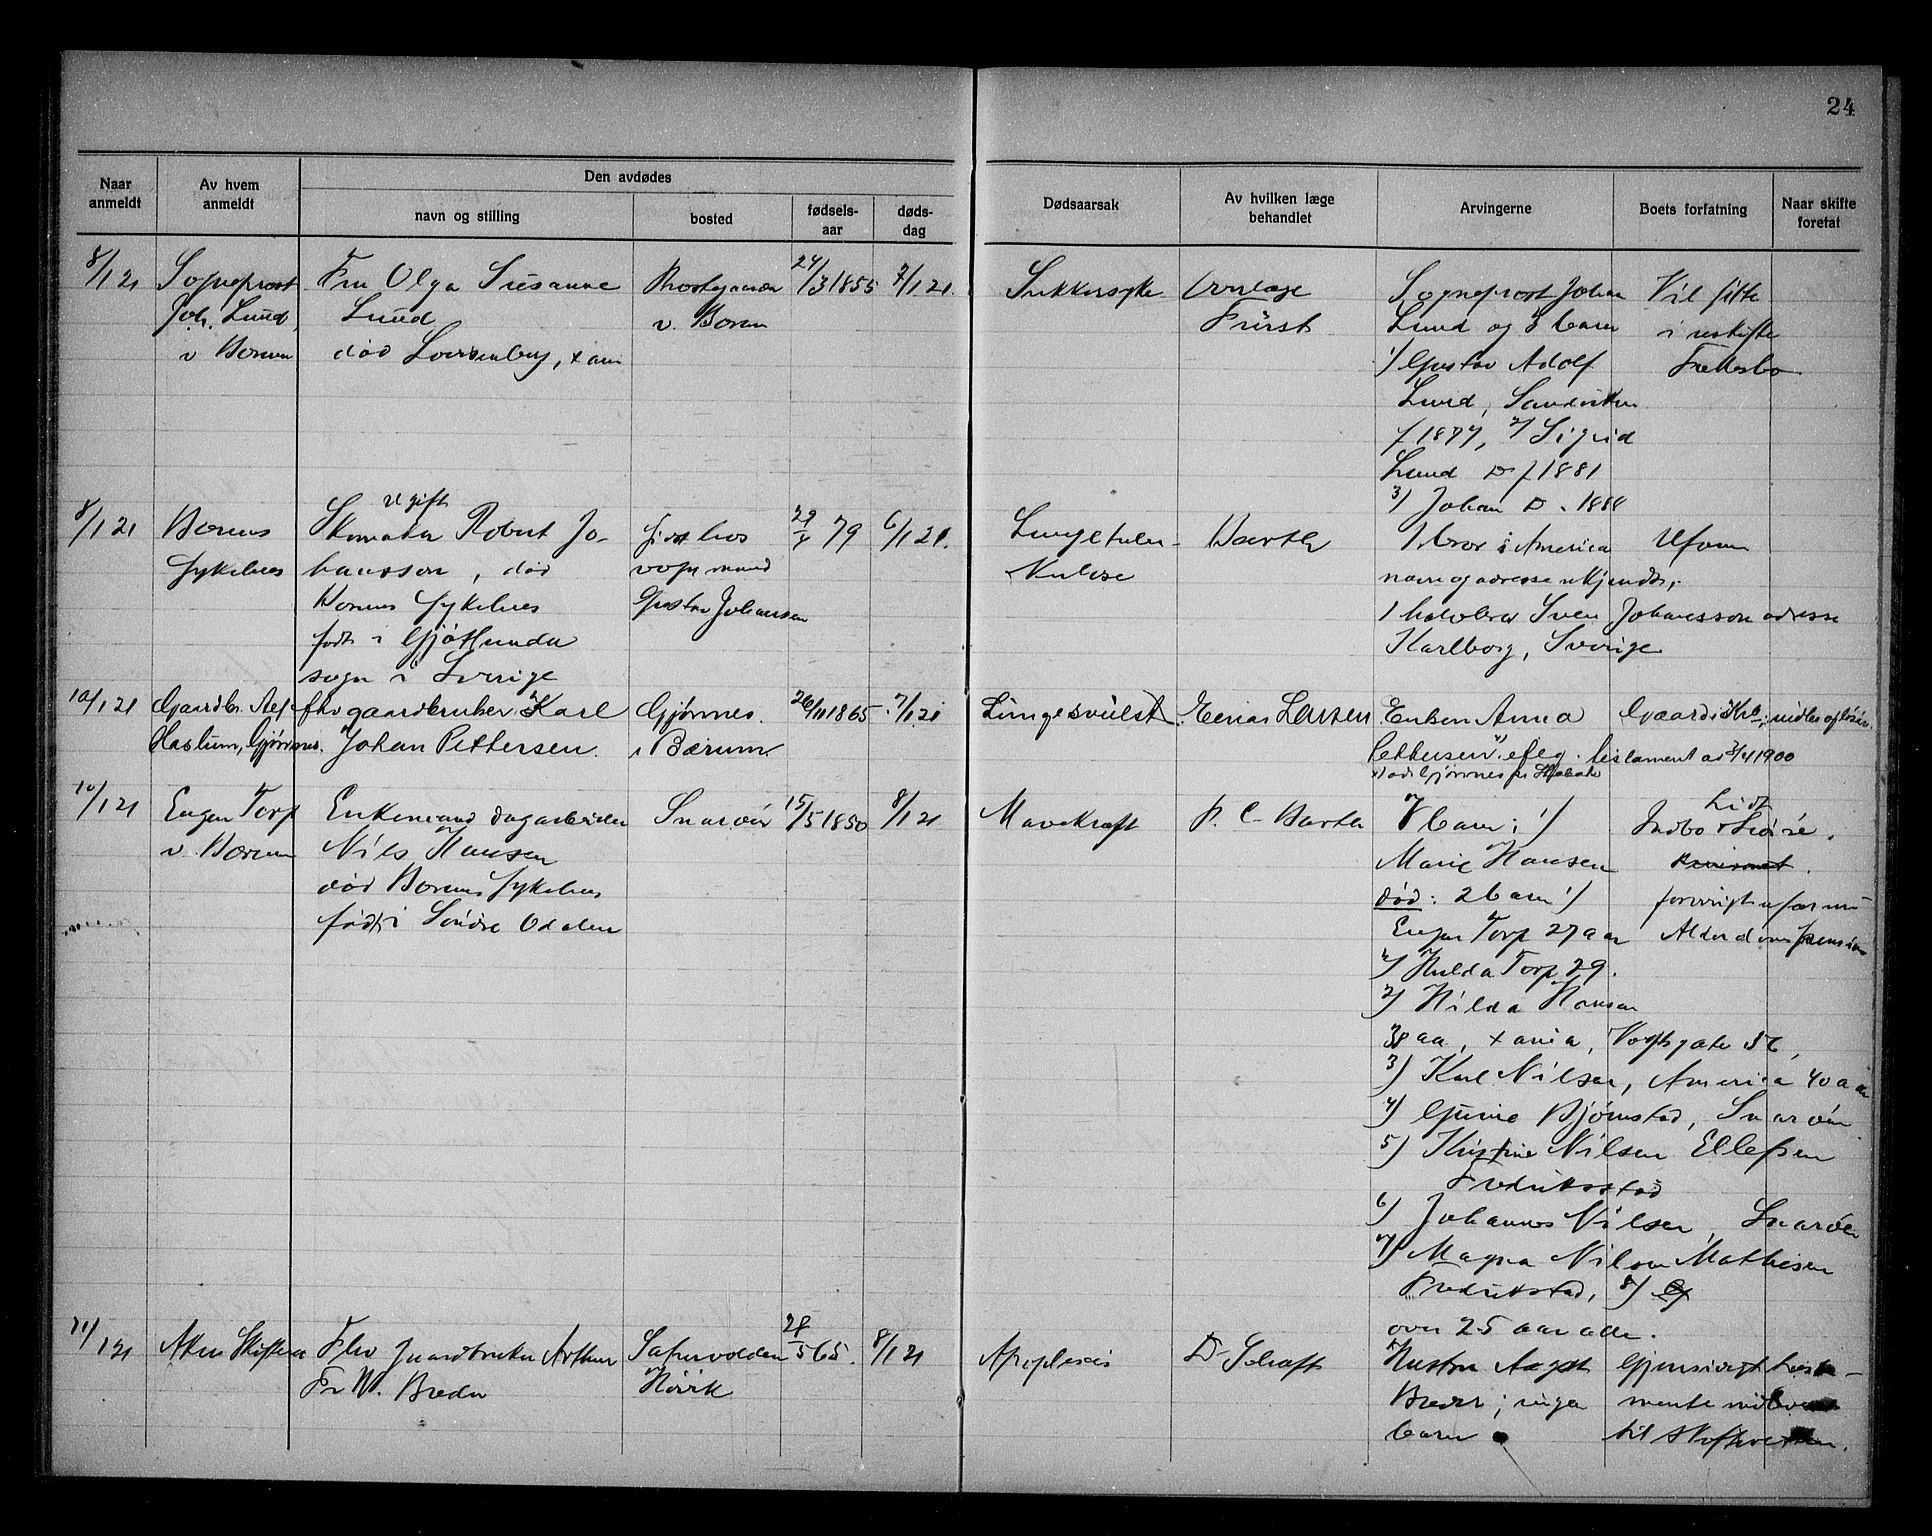 24
Naar anmeldt
Av hvem anmeldt
Den avdødes
navn og stilling
bosted
fødsels-aar
døds-dag
Dødsaarsak
Av hvilken læge behandlet
Arvingerne
Boets forfatning
Naar skifte foretat
8/1 21
Sogneprost
Joh. Lund,
v Bærum
Fru Olga Susanne
Lund
død Lovisenberg, x ania
Prostegaarden
v. Bærum
24/3 1855
7/1 21.
Sukkersyke
Overlæge
Fürst
Sogneprost Johan
Lund og 3 barn
1) Gustav Adolf
Lund, Sandviken
f 1877, 2) Sigrid
Lund D f 1881
3) Johan D. 1888
Vil sitte
i uskifte
Fællesbo
8/1 21
Bærums
Sykehus
Ugift
Skomaker Robert Jo-
hansson, død
Bærums Sykehus
født i Gjøtlunda
sogn i Sverige
sist hos
vognmand
Gustav Johansen
79
6/1 21.
Lungetuber-
kulose
Barth
1 bror i America
navn og adresse ukjendt,
1 halvbror Sven Johansson adresse
Karlborg, Sverige
10/1 21
Gaardbr.
Haslum, Gjønnes.
fhv gaardbruker Karl
Johan Pettersen.
Gjønnes.
i Bærum
26/11 1865
7/1 21
Lungesvulst.
Einar Larsen
Enken Anna
Pettersen efterl. testament av 2/4 1900
10/1 21
Eugen Torp
v. Bærum
Enkemand dagarbeider
Nils Hansen
død Bærums Sykehus
født i Søndre Odalen
Snarøen
15/5 1850
8/1 21
Mavekræft
P. C. Barth
7 barn: 1)
Marie Hansen
død: 2 barn 1)
Eugen Torp 27 aar
2) Hulda Torp 29.
2) Hilda Hansen
38 aar, x ania, Vogtsgate 56,
3) Karl Nilsen, America 40 aar
4) Gunie Bjørnstad, Snarøen
5) Kristine Nilsen Ellefsen
Fredriksstad
6) Johannes Nilsen, Snarøen
7) Magna Nilsen Mathisen
Fredrikstad, 8)
over 25 aar alle.
Lidt
Indbo & Løsøre.
forøvrigt
Alderdoms pension
11/1 21
Akers Skifteret
Fhv Gaardbruker Arthur
Fr W. Breder
Sætervolden
Høvik
28/5 65.
8/1 21
Apoplexis
Dr Schaft
Hustru
Breder; ingen
barn
Gjensidigt testa-
mente
til Skifteretten.